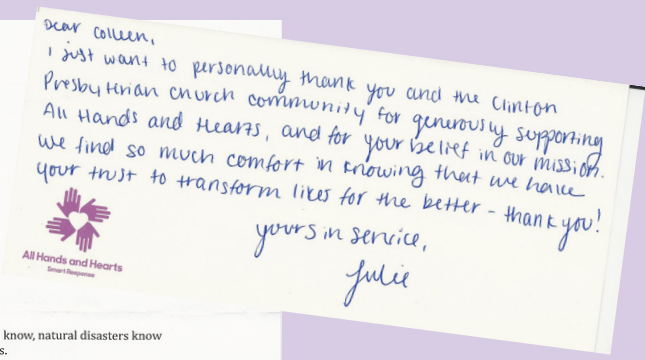 Dear Colleen,
I just want to personally thank you and the Clinton
Presbyterian church community for generously supporting
All Hands and Hearts, and for your belief in our mission.
We find so much comfort in knowing that we have
your trust to transform lives for the better - thank you!
yours in service,
Julie
All Hands and Hearts
Smart Response
know, natural disasters know
s.